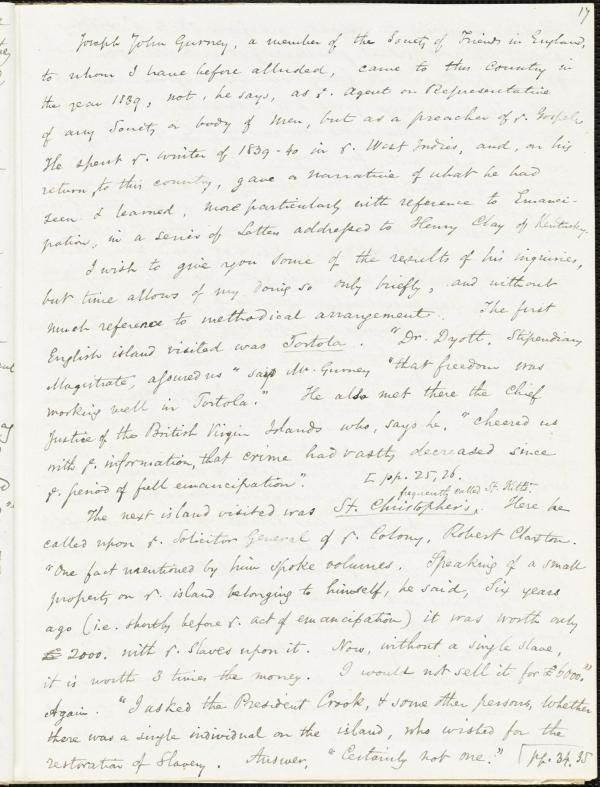 17
Joseph John Gurney, a member of the Society of Friends in England,
to whom I have before alluded, came to this country in
the year 1839, not, he says, as ye. agent or Representative
of any Society or body of men, but as a preacher of ye. Gospel.
He spent ye. winter of 1839-40 in ye. West Indies, and, on his
return to this country, gave a narrative of what he had
seen & learned, more particularly with reference to Emanci-
pation, in a series of Letters addressed to Henry Clay of Kentucky.
I wish to give you some of the results of his inquiries,
but time allows of my doing so only briefly, and without
much reference to methodical arrangement. The first
English island visited was Tortola. "Dr. Dyott, Stipendiary
Magistrate, assured us" says Mr. Gurney "that freedom was
working well in Tortola." He also met there the Chief
Justice of the British Virgin Islands who, says he, "cheered us
with ye. information, that crime had vastly decreased since
ye. period of full emancipation". [pp. 25, 26.
frequently called St. Kitts.
The next island visited was St. Christopher's, Here he
called upon ye. Solicitor General of ye. Colony, Robert Claxton.
"One fact mentioned by him spoke volumes. Speaking of a small
property on ye. island belonging to himself, he said, Six years
ago (i.e. shortly before ye. act of emancipation) it was worth only
£2000. with ye. slaves upon it. Now, without a single slave,
it is worth 3 times the money. I would not sell it for £6000."
Again. "I asked the President Crook, & some other persons, whether
there was a single individual on the island, who wished for the
restoration of Slavery. Answer, "Certainly not one." [pp. 34, 35